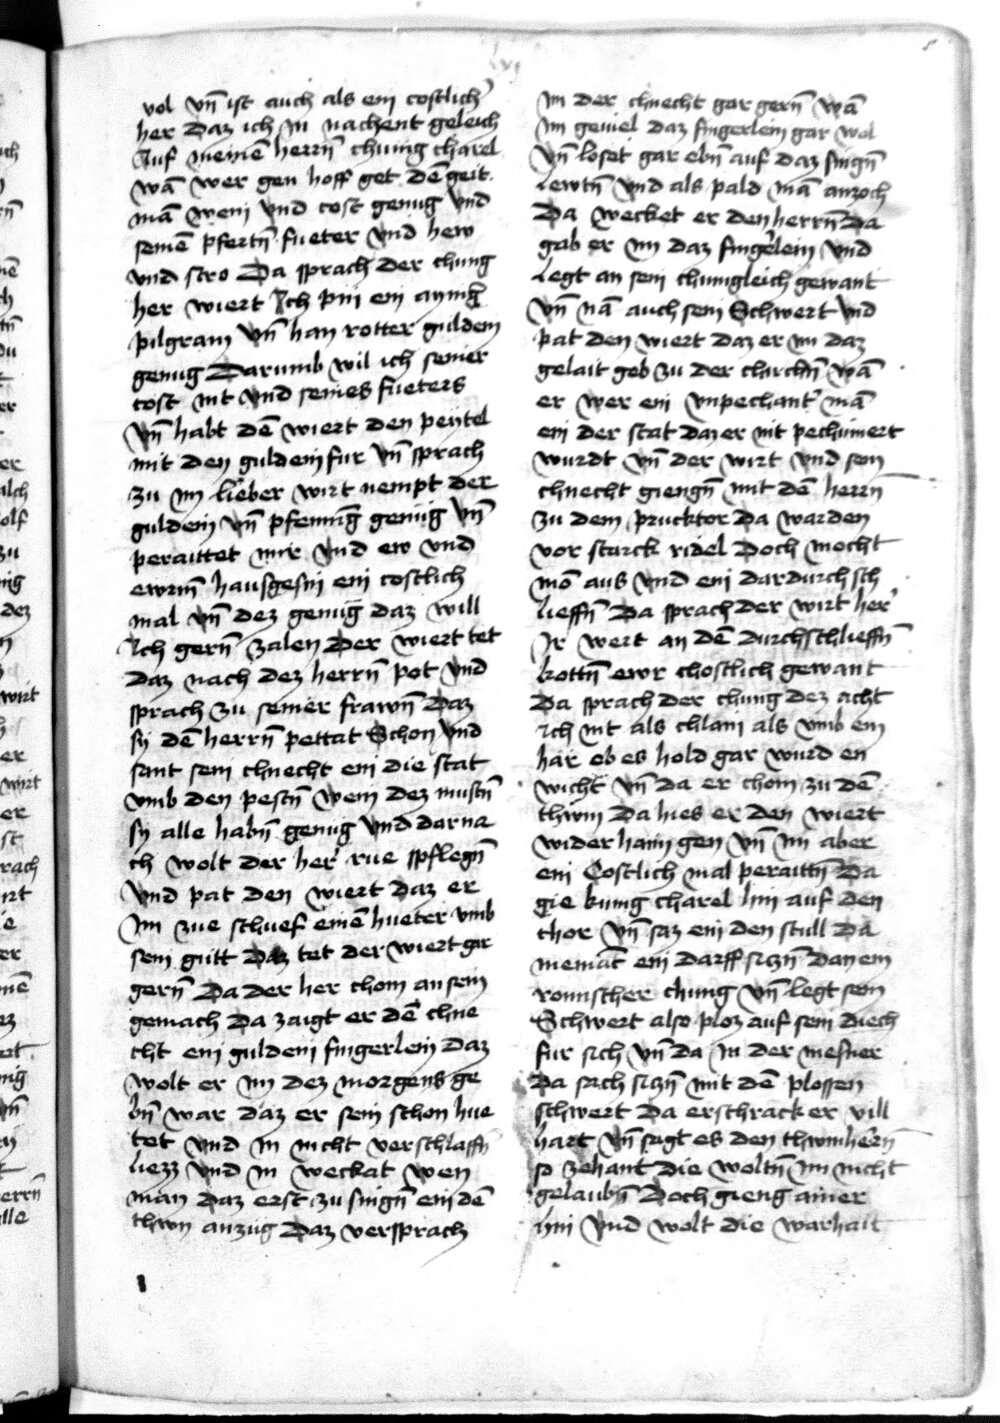 vol vn̄ ist auch als ein costlicher
her Daz ich in nachent geleich
Auf meinē herrn̄ chunig charel
wā wer gen hoff get dē geit
mā wein vnd cost genug vnd
seinē pfertn̄ fueter vnd hew
vnd stro Da sprach der chunig
her wiert Ich pin ein ayniger
pilgram vn̄ han rotter guldein
genug Darumb wil ich seiner
cost nit vnd seines fueters
vn̄ habt dē wiert den peytel
mit den guldein fur vn̄ sprach
zu im lieber wirt nempt der
guldein vn̄ pfenning genug vn̄
peraittet mir vnd ew vnd
ewrm̄ hausgesin ein costlich
mal vn̄ dez genug daz will
Ich gern̄ zalen Der wiert tet
Daz nach dez herrn̄ pot vnd
sprach zu seiner frawn̄ Daz
sy dē herrn̄ pettat Schon vnd
sant sein chnecht ein die stat
vmb den pestn̄ wein dez mustn̄
sy alle habn̄ genug vnd darna
ch wolt der her rue pflegn̄
vnd pat den wiert daz er
Im zue schuef einē hueter vmb
sein gutt Daz tet der wiert gar
gern̄ Da der her chom an sein
gemach Da zaigt er dē chne
cht ein guldein fingerlein daz
wolt er im dez morgens ge
bn̄ war daz er sein schon hue
tet vnd in nicht verschlaffn̄
liezz vnd in weckat wen
man daz erst zu singn̄ ein dē
thwn anzug Daz versprach
im der chnecht gar gern̄ wā
im geviel daz fingerlein gar wol
vn̄ loset gar ebn̄ auf daz singn̄
lewtn̄ vnd als pald mā anzoch
Da wecket er den herrn̄ Da
gab er im daz fingerlein vnd
legt an sein chunigleich gewant
vn̄ nā auch sein Schwert vnd
pat den wiert daz er im daz
gelait geb zu der chirchn̄ wā
er wer ein vnpechanter mā
ein der stat daz er nit pechumert
wurdt vn̄ der wirt vnd sein
chnecht giengn̄ mit dē herrn̄
zu dem prucktor Da warden
vor starck ridel Doch mocht
mō aus vnd ein dardurch sch
lieffn̄ Da sprach der wirt her
Ir wert an dē durchschlieffn̄
kottn̄ ewr chostlich gewant
Da sprach der chunig dez acht
ich nit als chlain als vmb ein
har eb es hold gar wurd en
wicht vn̄ da er chom zu dē
thwm Da hies er den wiert
wider haim gen vn̄ im aber
ein Costlich mal peraittn̄ Da
gie kunig charel hin auf den
chor vn̄ saz ein den stull Da
niemāt ein darff siczn̄ Dan ein
romischer chunig vn̄ legt sein
Schwert also ploz auf sein diech
fur sich vn̄ da in der mesner
Da sach siczn̄ mit dē plossen
schwert Da erschrack er vill
hart vn̄ sagt es den thwmhern̄
so zehant die woltn̄ im nicht
gelaubn̄ Doch gieng ainer
hin vnd wolt die warhait